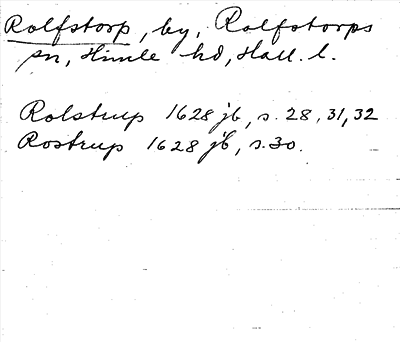 Rolfstorp, by, Rolfstorps
sn, Himle hd, Hall. l.
Rolstrup 1628 jb, s. 28, 31, 32
Rostrup 1628 jb, s. 30.